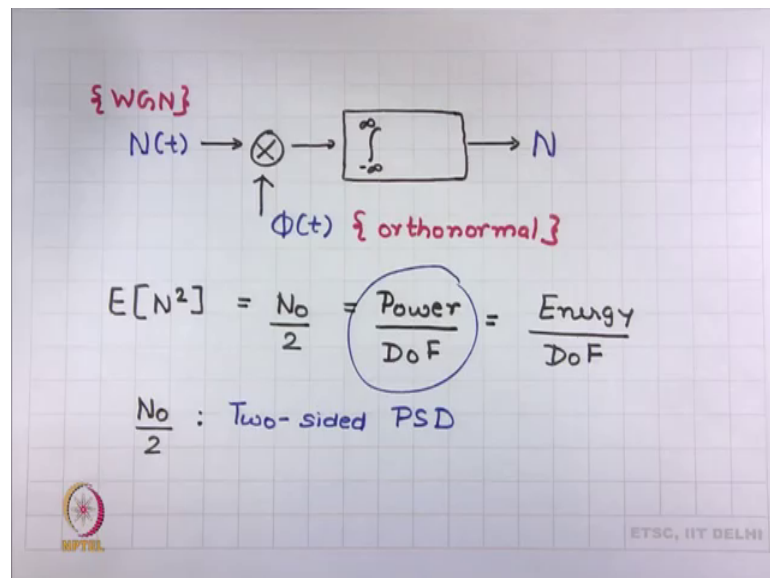 {WGN}
N(t) → ⊗ → ∫_{-∞}^{∞} → N
Φ(t) { orthonormal }
E[N²] = No/2 = Power/DoF = Energy/DoF
No/2 : Two-sided PSD
NPTEL
ETSC, IIT DELHI